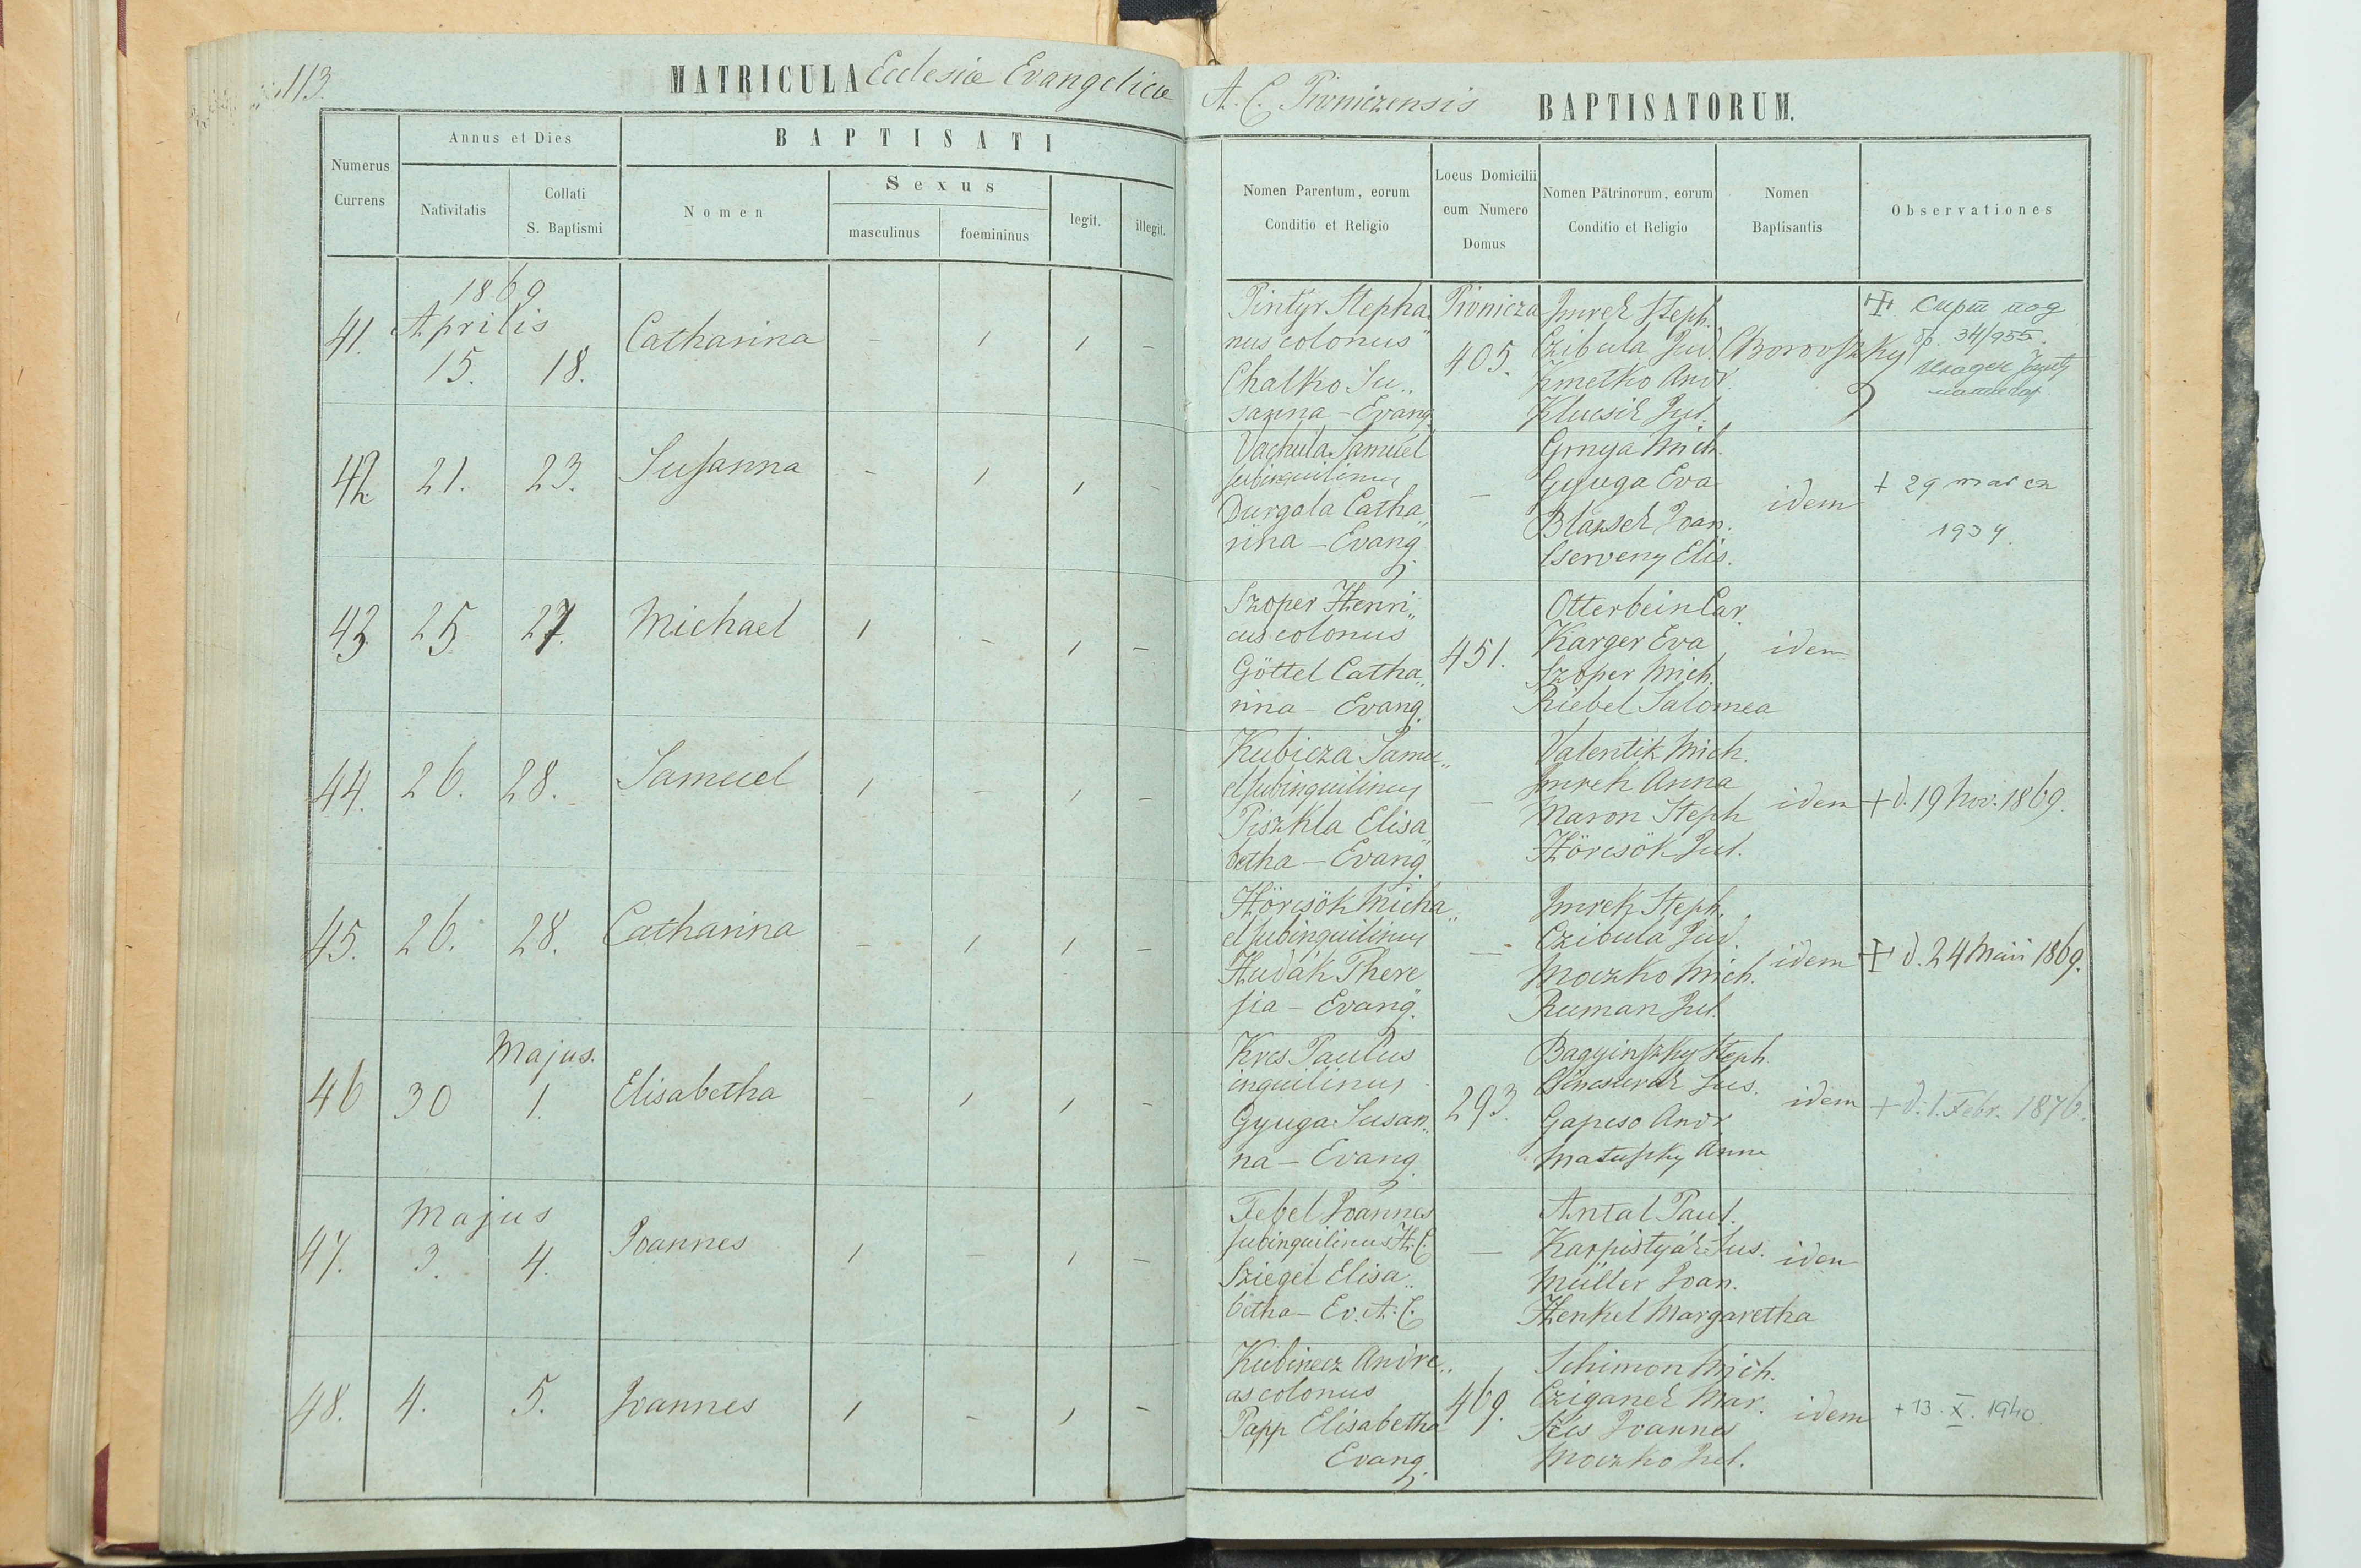 113.
MATRICULA Ecclesiæ Evangelicæ A. C. Pivniczensis BAPTISATORUM.
Numerus Currens
Annus et Dies
Nativitatis
Collati S. Baptismi
BAPTISATI
Nomen
Sexus
masculinus
foemininus
legit.
illegit.
Nomen Parentum, eorum
Conditio et Religio
Locus Domicilii
cum Numero
Domus
Nomen Patrinorum, eorum
Conditio et Religio
Nomen
Baptisantis
Observationes
1869
Aprilis
41. 15. 18. Catharina - 1 1 -
Pintyr Stepha„
nus colonus
Chalko Su„
sanna - Evang.
Pivnicza
405.
Imrek Steph.
Czibula Jud.
Kmetko Andr.
Klucsik Jul.
Borovszky
34/955.
42. 21. 23. Susanna - 1 1 -
Vachula Samuel
subinquilinus
Durgala Catha„
rina - Evang.
-
Grnya Mich.
Gyuga Eva
Blazsek Joan.
Cserveny Elis.
idem
+ 29 marca
1934.
43. 25 27. Michael 1 - 1 -
Szoper Henri„
cus colonus
Göttel Catha„
rina - Evang.
451.
Otterbein Car.
Karger Eva
Szoper Mich.
Riebel Salomea
idem
44. 26. 28. Samuel 1 - 1 -
Kubicza Samu„
el subinquilinus
Piszkla Elisa„
betha - Evang.
-
Valentik Mich.
Imrek Anna
Maron Steph
Hörcsök Jul.
idem
+ d. 19 Nov. 1869.
45. 26. 28. Catharina - 1 1 -
Hörcsök Micha„
el subinquilinus
Hudák There
sia - Evang.
-
Imrek Steph.
Czibula Jud.
Moczko Mich.
Ruman Jul.
idem
+ d. 24 Maii 1869.
Majus.
46 30 1. Elisabetha - 1 1 -
Kres Paulus
inquilinus
Gyuga Susan„
na - Evang.
293.
Bagyinszky Steph.
Gapcso Andr
Matuszky Anna
idem
+ d. 1. Febr. 1876.
Majus
47. 3. 4. Joannes 1 - 1 -
Febel Joannes
subinquilinus H. C.
Sziegel Elisa„
betha - Ev. A. C.
-
Antal Paul.
Karpistyák Sus.
Müller Joan.
Henkel Margaretha
idem
48. 4. 5. Joannes 1 - 1 -
Kubinecz Andre„
as colonus
Papp Elisabetha
Evang.
469.
Schimon Mich.
Cziganek Mar.
Kis Joannes
Moczko Jul.
idem
+ 13. X. 1940.